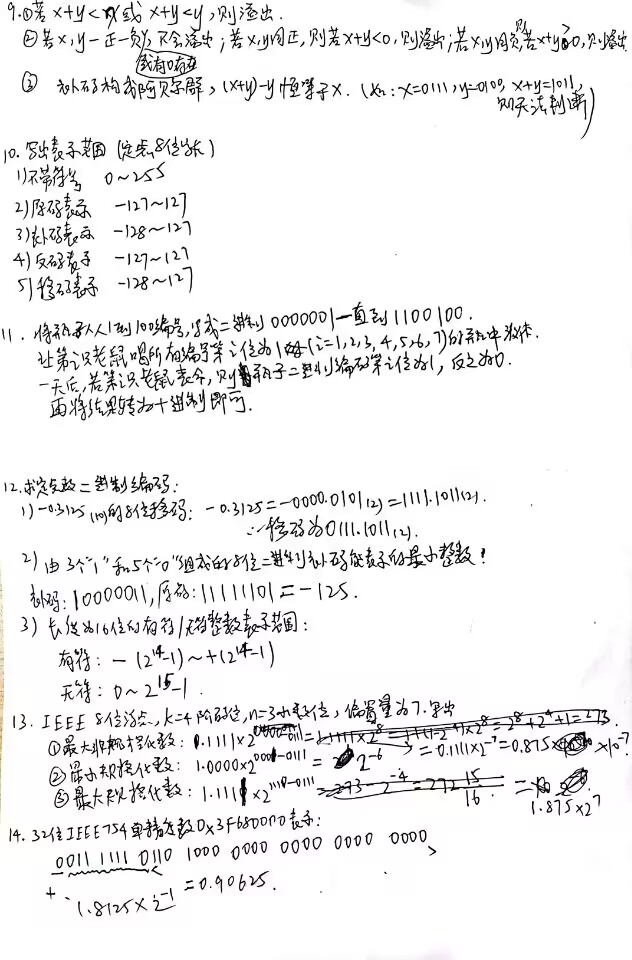 9.①若x+y<x或x+y<y,则溢出.
②若x,y一正一负,不会溢出;若x,y同正,则若x+y<0,则溢出;若x,y同负,若x+y≥0,则溢出
或有0存在
③ 补码构成阿贝尔群,(x+y)-y恒等于x.(如:x=0111,y=0100,x+y=1011,
则无法判断)
10.写出表示范围(定点,8位字长)
1)不带符号 0~255
2)原码表示 -127~127
3)补码表示 -128~127
4)反码表示 -127~127
5)移码表示 -128~127
11.将瓶子从1到100编号,写成二进制0000001一直到1100100.
让第i只老鼠喝所有编号第i位为1的(i=1,2,3,4,5,6,7)的瓶中液体.
一天后,若第i只老鼠丧命,则瓶子二进制编码第i位为1,反之为0.
再将结果转为十进制即可.
12.求定点数二进制编码:
1)-0.3125(10)的8位移码: -0.3125=-0000.0101(2)=1111.1011(2).
∴移码为0111.1011(2).
2)由3个"1"和5个"0"组成的8位二进制补码能表示的最小整数?
补码:10000011,原码:11111101=-125.
3)长度为16位的有符/无符整数表示范围:
有符: -(2¹⁴-1)~+(2¹⁴-1)
无符: 0~2¹⁵-1.
13.IEEE 8位浮点,k=4阶码位,n=3小数位,偏置量为7.写出
①最大非规格化数: 0.111×2^0000-0111=0.111×2⁻⁷=0.875×10⁻⁷
②最小规格化数: 1.0000×2^0001-0111=2⁻⁶
③最大规格化数: 1.111×2^1110-0111=1.875×2⁷
14.32位IEEE754单精度数0x3F680000表示:
0011 1111 0110 1000 0000 0000 0000 0000
+ 1.8125×2⁻¹=0.90625.